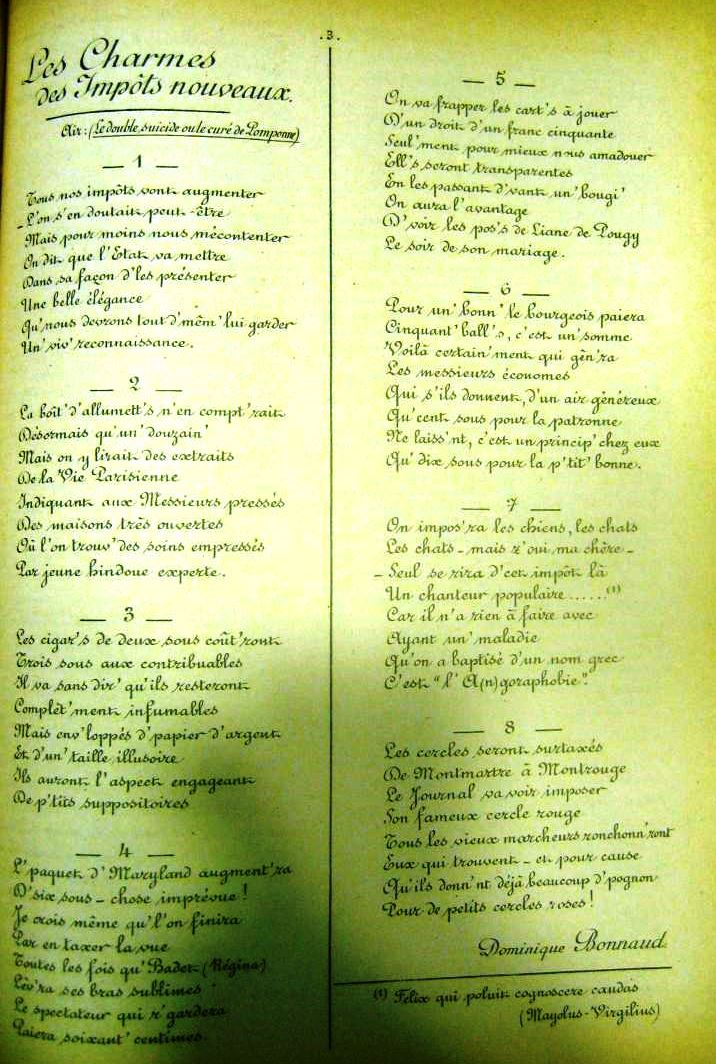 .3.
Les Charmes
des Impôts nouveaux.
Air: (Le double suicide ou le curé de Pomponne)
— 1 —
Tous nos impôts vont augmenter
- L'on s'en doutait peut-être
Mais pour moins nous mécontenter
On dit que l'Etat va mettre
Dans sa façon d'les présenter
Une belle élégance
Qu'nous devrons tout d'mêm' lui garder
Un' viv' reconnaissance.
— 2 —
La boît' d'allumett's n'en compt'rait
Désormais qu'un' douzain'
Mais on y lirait des extraits
De la Vie Parisienne
Indiquant aux Messieurs pressés
Des maisons très ouvertes
Où l'on trouv' des soins empressés
Par jeune hindoue experte.
— 3 —
Les cigar's de deux sous coût'ront
Trois sous aux contribuables
Il va sans dir' qu'ils resteront
Complèt'ment infumables
Mais env'loppés d'papier d'argent
Et d'un' taille illusoire
Ils auront l'aspect engageant
De p'tits suppositoires
— 4 —
L'paquet d'Maryland augment'ra
D'six sous - chose imprévue !
Je crois même qu'l'on finira
Par en taxer la vue
Toutes les fois qu'Badet (Régina)
Lèv'ra ses bras sublimes
Le spectateur qui r'gardera
Paiera soixant' centimes.
— 5 —
On va frapper les cart's à jouer
D'un droit d'un franc cinquante
Seul'ment pour mieux nous amadouer
Ell's seront transparentes
En les passant d'vant un' bougi'
On aura l'avantage
D'voir les pos's de Liane de Pougy
Le soir de son mariage.
— 6 —
Pour un' bonn' le bourgeois paiera
Cinquant' ball's, c'est un' somme
Voilà certain'ment qui gên'ra
Les messieurs économes
Qui s'ils donnent, d'un air généreux
Qu'cent sous pour la patronne
Ne laiss'nt, c'est un princip' chez eux
Qu'dix sous pour la p'tit' bonne.
— 7 —
On impos'ra les chiens, les chats
Les chats - mais z'oui ma chère -
- Seul se rira d'cet impôt là
Un chanteur populaire ......(1)
Car il n'a rien à faire avec
Ayant un' maladie
Qu'on a baptisé d'un nom grec
C'est "l'A(n)goraphobie".
— 8 —
Les cercles seront surtaxés
De Montmartre à Montrouge
Le Journal va voir imposer
Son fameux cercle rouge
Tous les vieux marcheurs ronchonn'ront
Eux qui trouvent - et pour cause
Qu'ils donn'nt déjà beaucoup d'pognon
Pour de petits cercles roses !
Dominique Bonnaud.
(1) Felix qui poluit cognoscere caudas
(Mayolus-Virgilius)